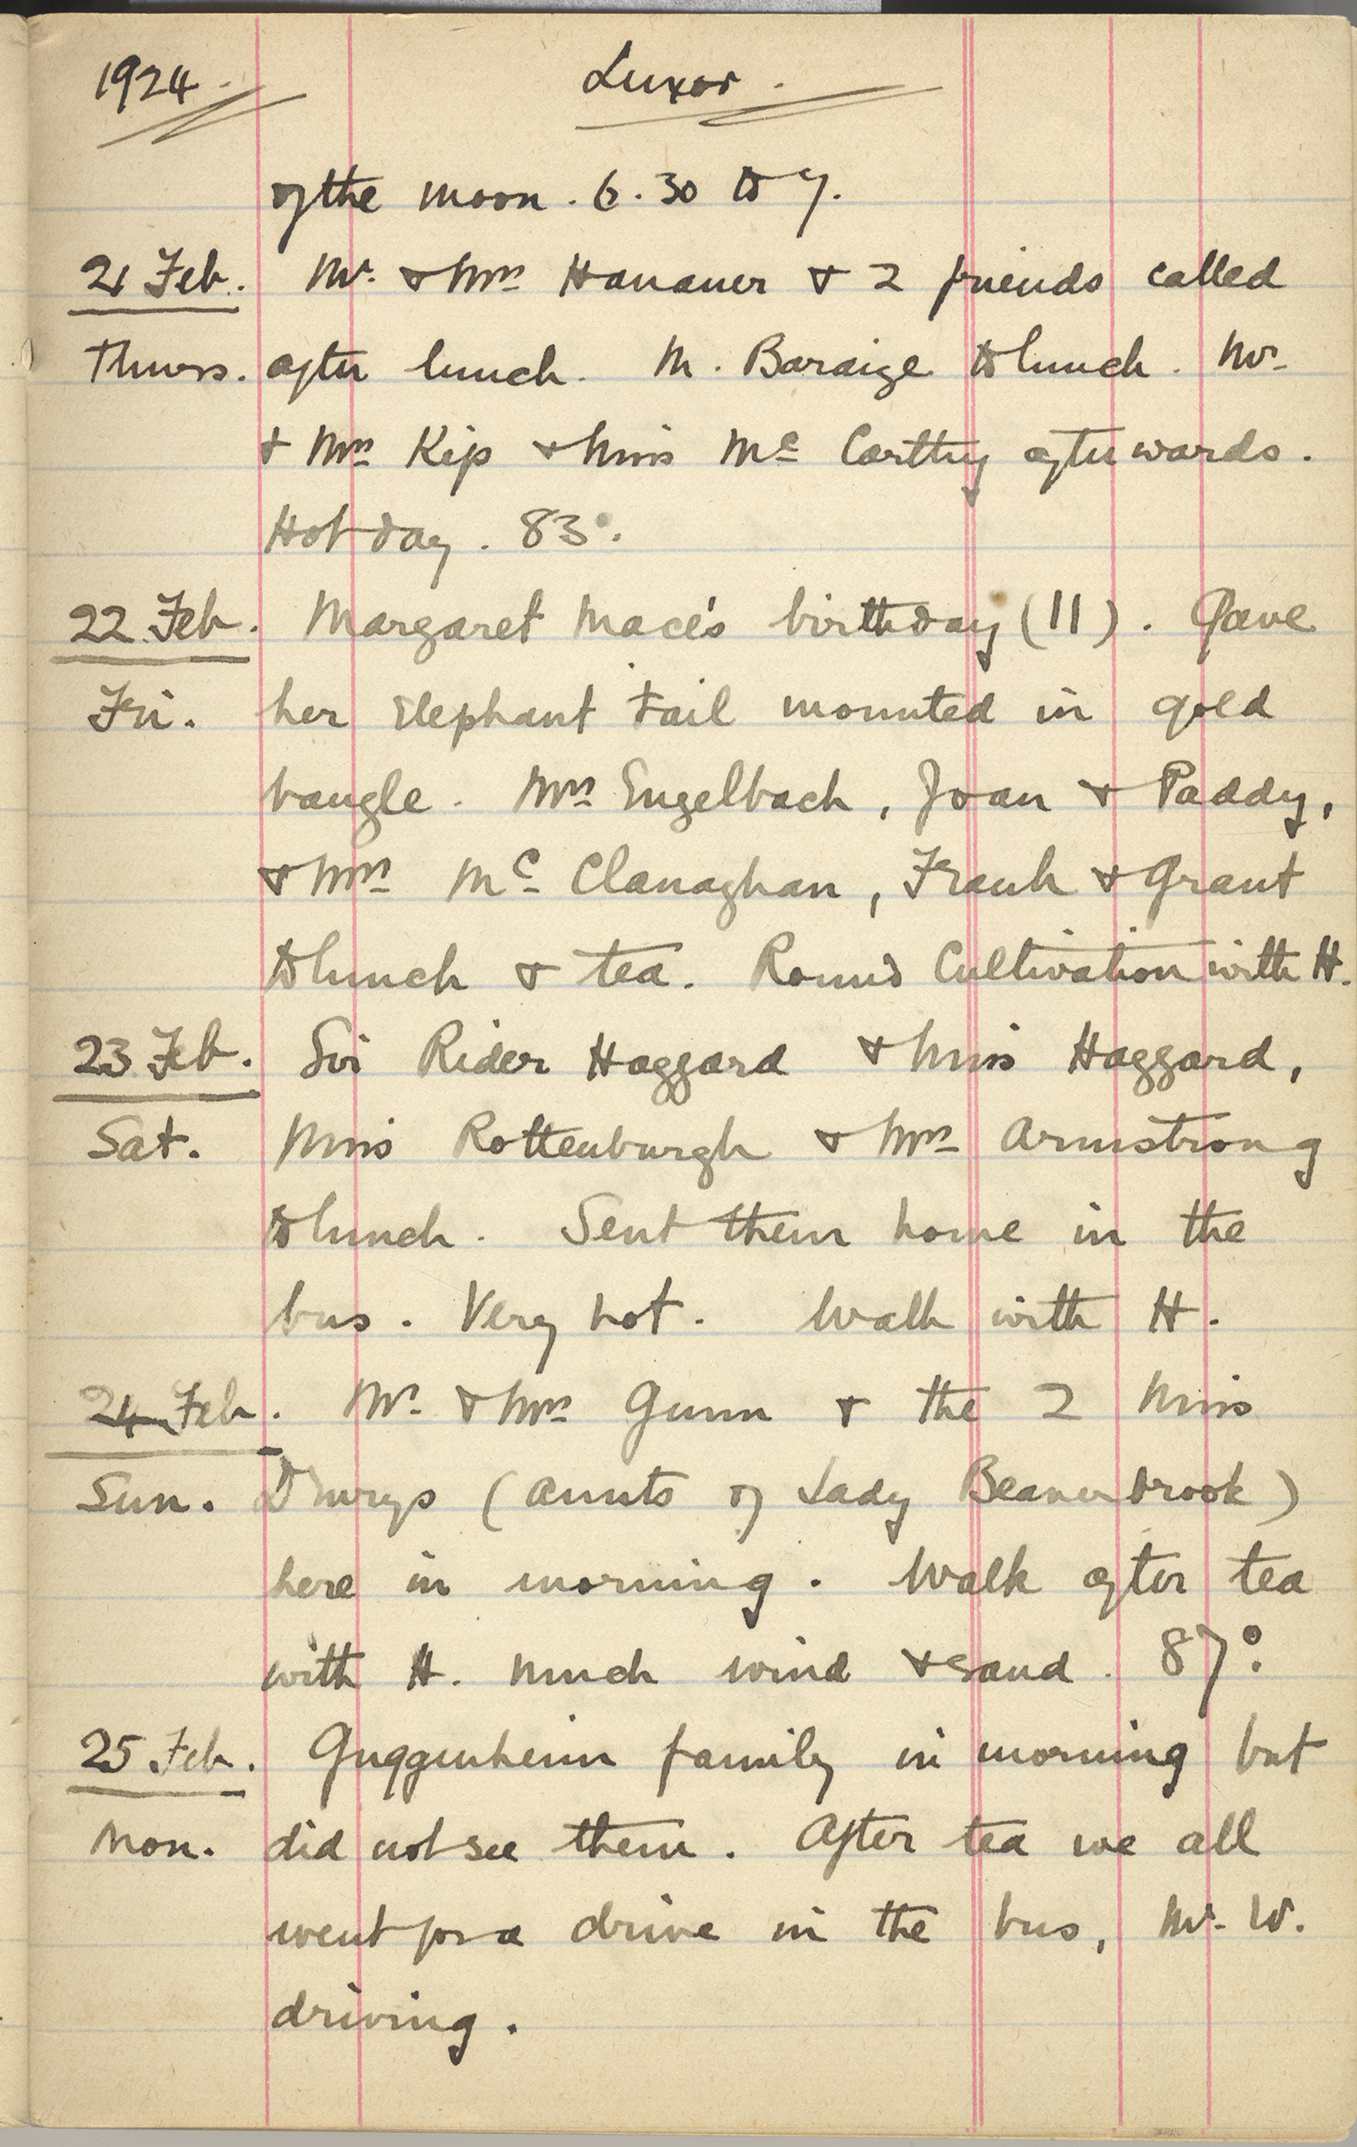 1924. Luxor.
of the moon. 6.30 to 7.
21 Feb. Mr. & Mrs Hanauer & 2 friends called
Thurs. after lunch. M. Baraize to lunch. Mr.
& Mrs Kip & Miss Mc Carthy afterwards.
Hot day. 83°.
22 Feb. Margaret Mace's birthday (11). Gave
Fri. her Elephant tail mounted in gold
bangle. Mrs Engelbach, Joan & Paddy,
& Mrs Mc Clanaghan, Frank & Grant
to lunch & tea. Round Cultivation with H.
23 Feb. Sir Rider Haggard & Miss Haggard,
Sat. Miss Rottenburgh & Mrs Armstrong
to lunch. Sent them home in the
bus. Very hot. Walk with H.
24 Feb. Mr. & Mrs Gunn & the 2 Miss
Sun. Drurys (aunts of Lady Beaverbrook)
here in morning. Walk after tea
with H. Much wind & sand. 87°.
25 Feb. Guggenheim family in morning but
Mon. did not see them. After tea we all
went for a drive in the bus, Mr. W.
driving.